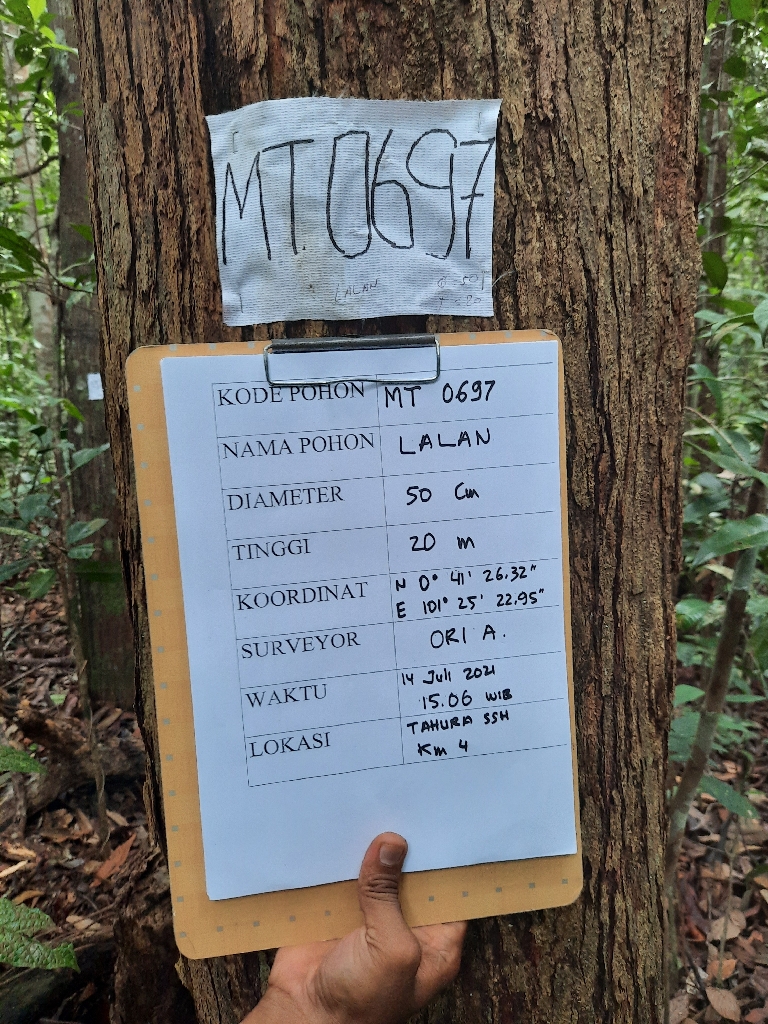 MT.0697
LALAN
KODE POHON MT 0697
NAMA POHON LALAN
DIAMETER 50 Cm
TINGGI 20 m
KOORDINAT N 0° 41' 26.32"
E 101° 25' 22.95"
SURVEYOR ORI A.
WAKTU 14 Juli 2021
15.06 WIB
LOKASI TAHURA SSH
Km 4